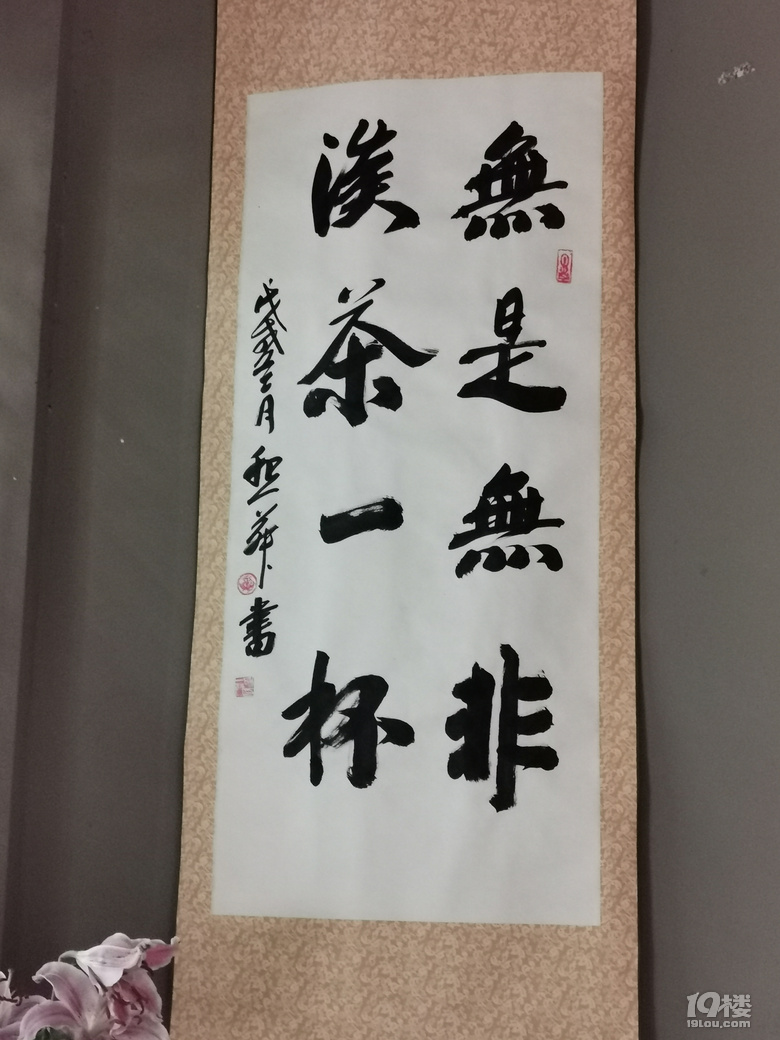 無是無非
淡茶一杯
戊戌月華書
19楼
19lou.com